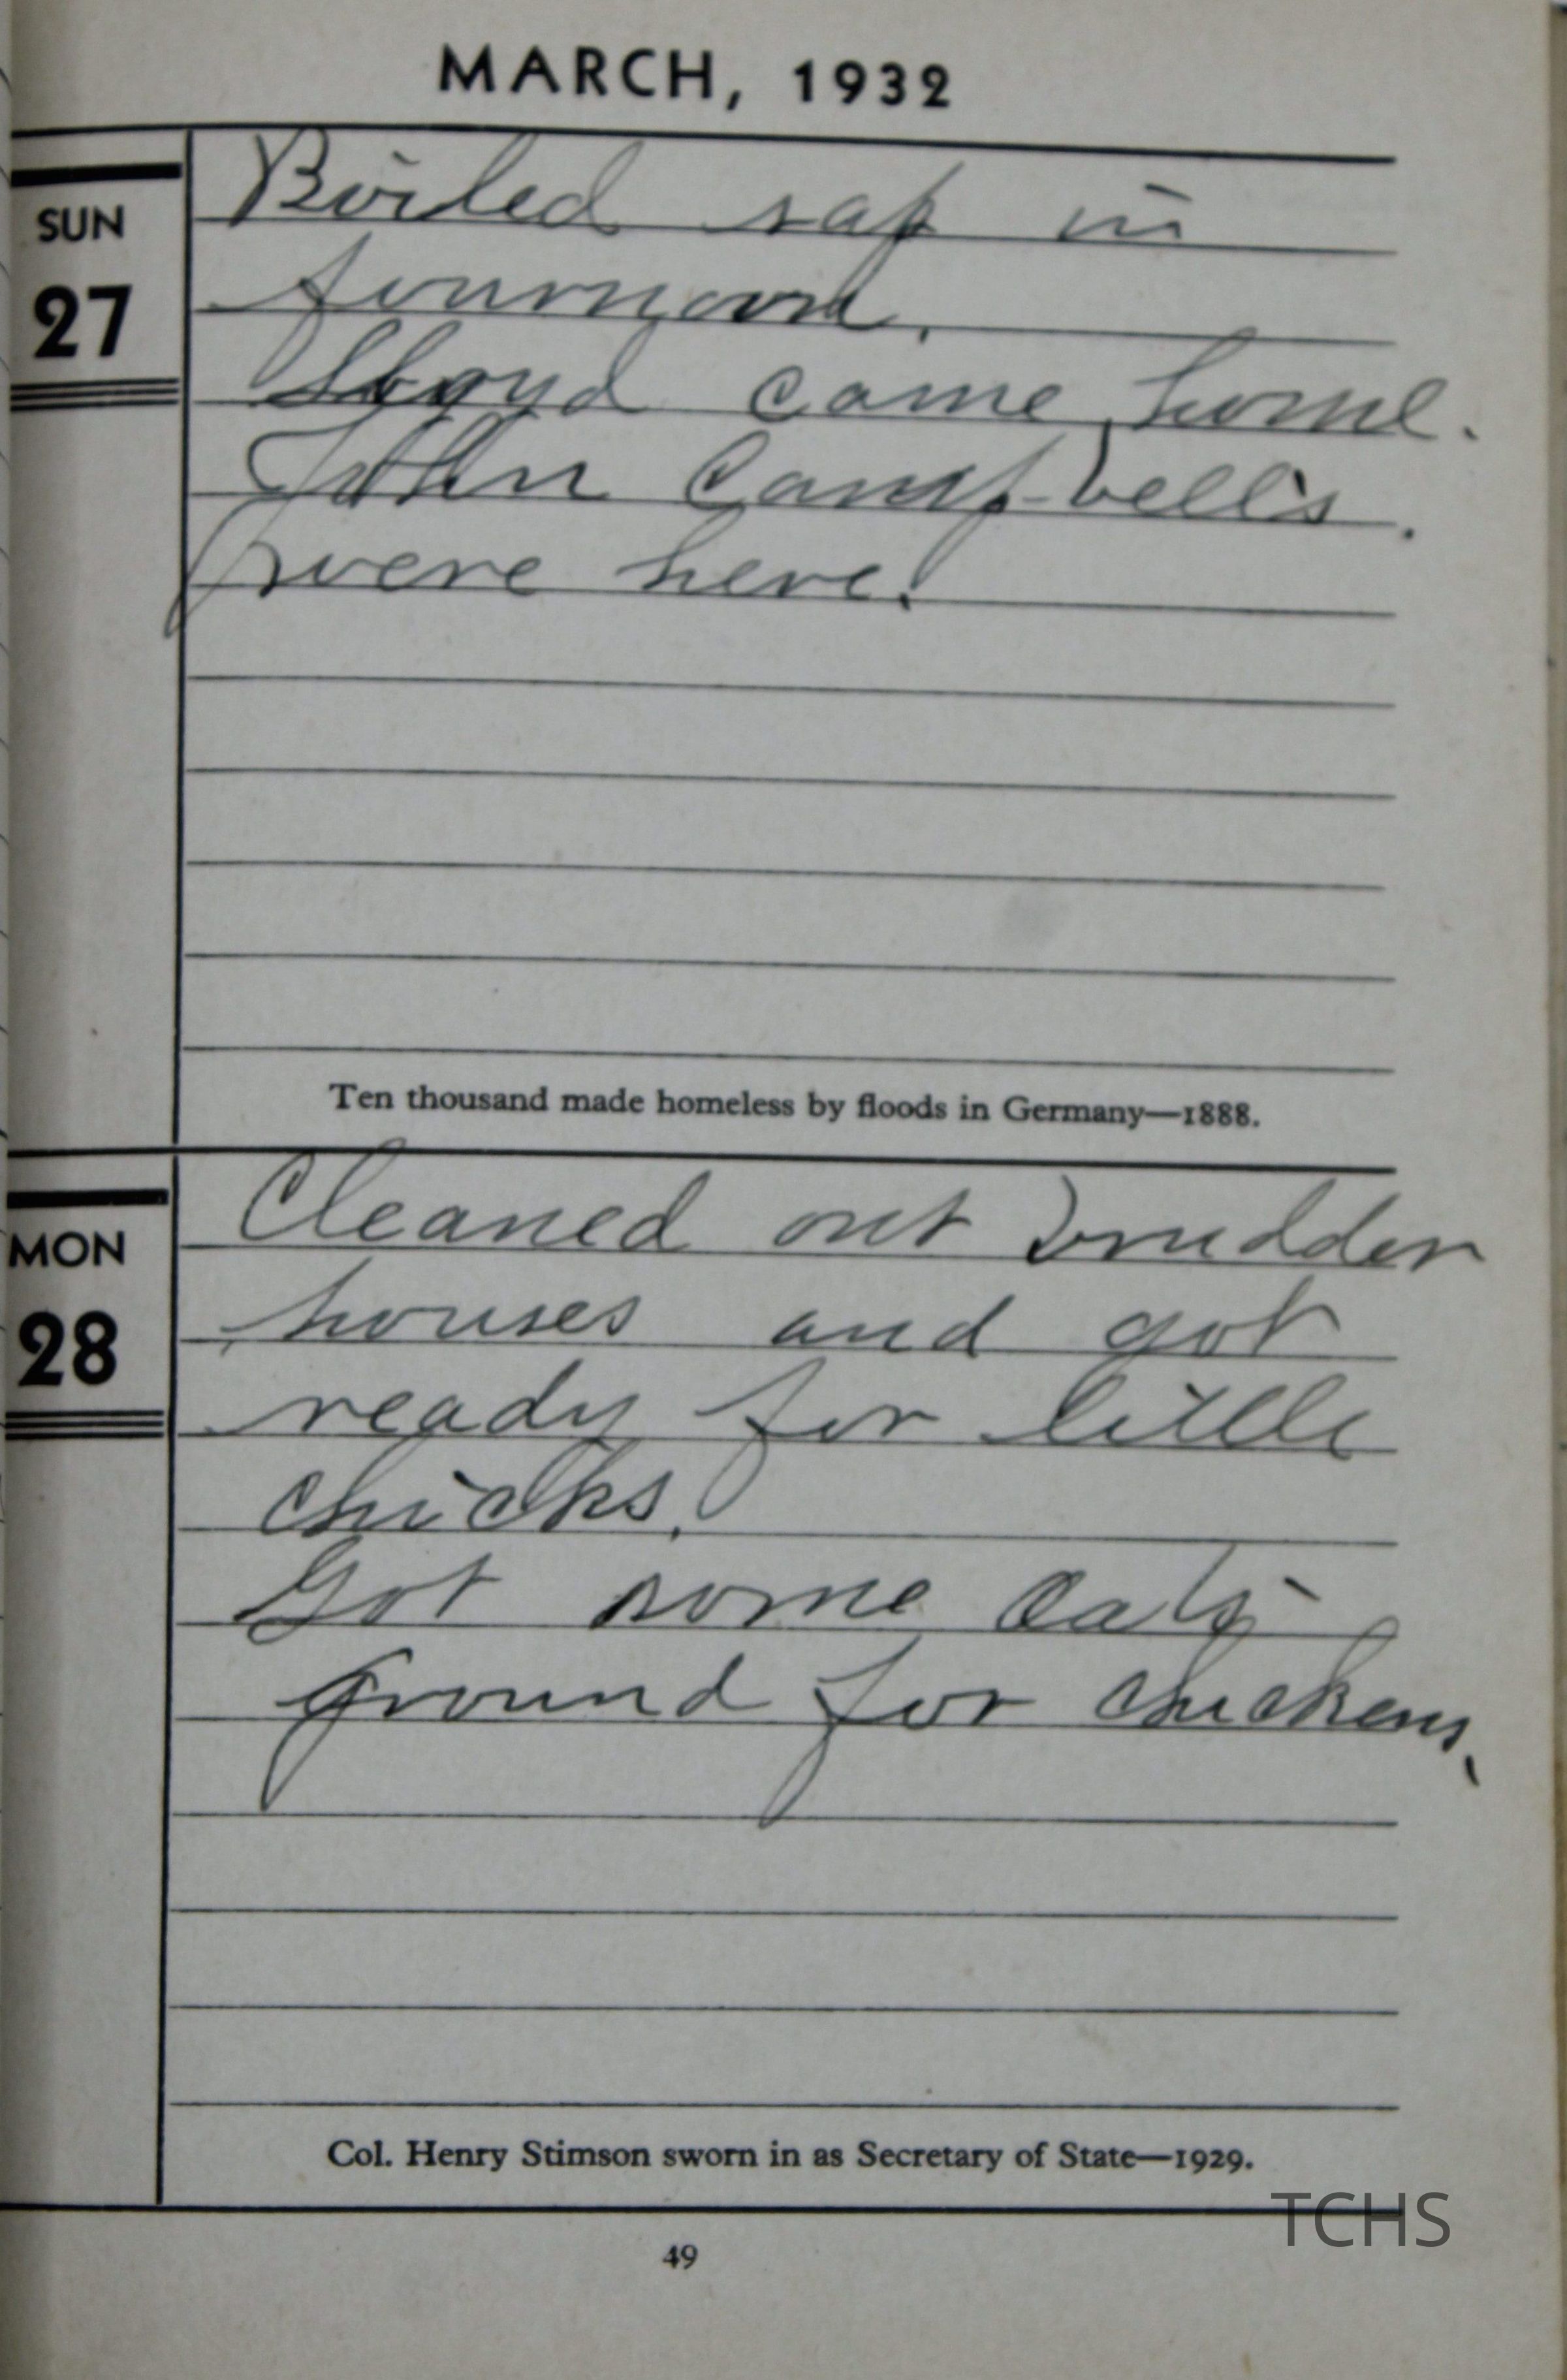 MARCH, 1932
SUN
27
Boiled sap in
fournoon.
Lloyd came home.
John Campbell's.
were here.
Ten thousand made homeless by floods in Germany—1888.
MON
28
Cleaned out brudder
houses and got
ready for little
chicks.
Got some oats
ground for chickens.
Col. Henry Stimson sworn in as Secretary of State—1929.
TCHS
49